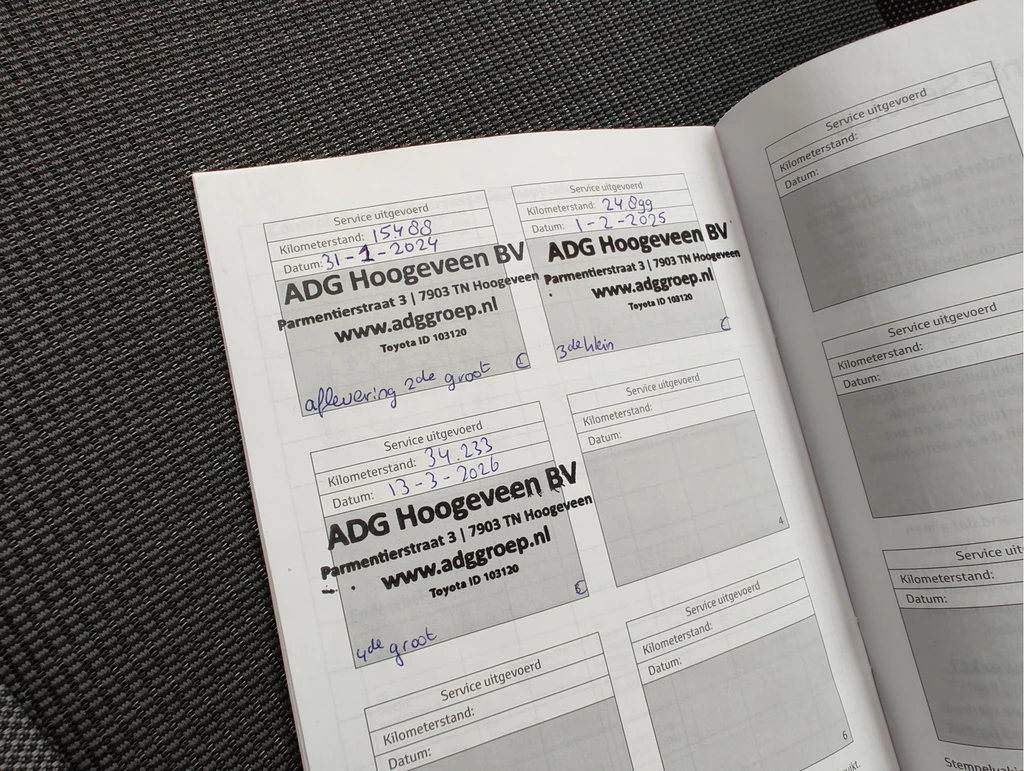 Service uitgevoerd
Kilometerstand: 15488
Datum: 31-1-2024
ADG Hoogeveen BV
Parmentierstraat 3 | 7903 TN Hoogeveen
www.adggroep.nl
Toyota ID 103120
aflevering 2de groot
Service uitgevoerd
Kilometerstand: 24.899
Datum: 1-2-2025
ADG Hoogeveen BV
Parmentierstraat 3 | 7903 TN Hoogeveen
www.adggroep.nl
Toyota ID 103120
3de klein
Service uitgevoerd
Kilometerstand: 34.233
Datum: 13-3-2026
ADG Hoogeveen BV
Parmentierstraat 3 | 7903 TN Hoogeveen
www.adggroep.nl
Toyota ID 103120
4de groot
Service uitgevoerd
Kilometerstand:
Datum:
4
Service uitgevoerd
Kilometerstand:
Datum:
Service uitgevoerd
Kilometerstand:
Datum:
6
Service uitgevoerd
Kilometerstand:
Datum:
Service uitgevoerd
Kilometerstand:
Datum:
Service uit
Kilometerstand:
Datum: